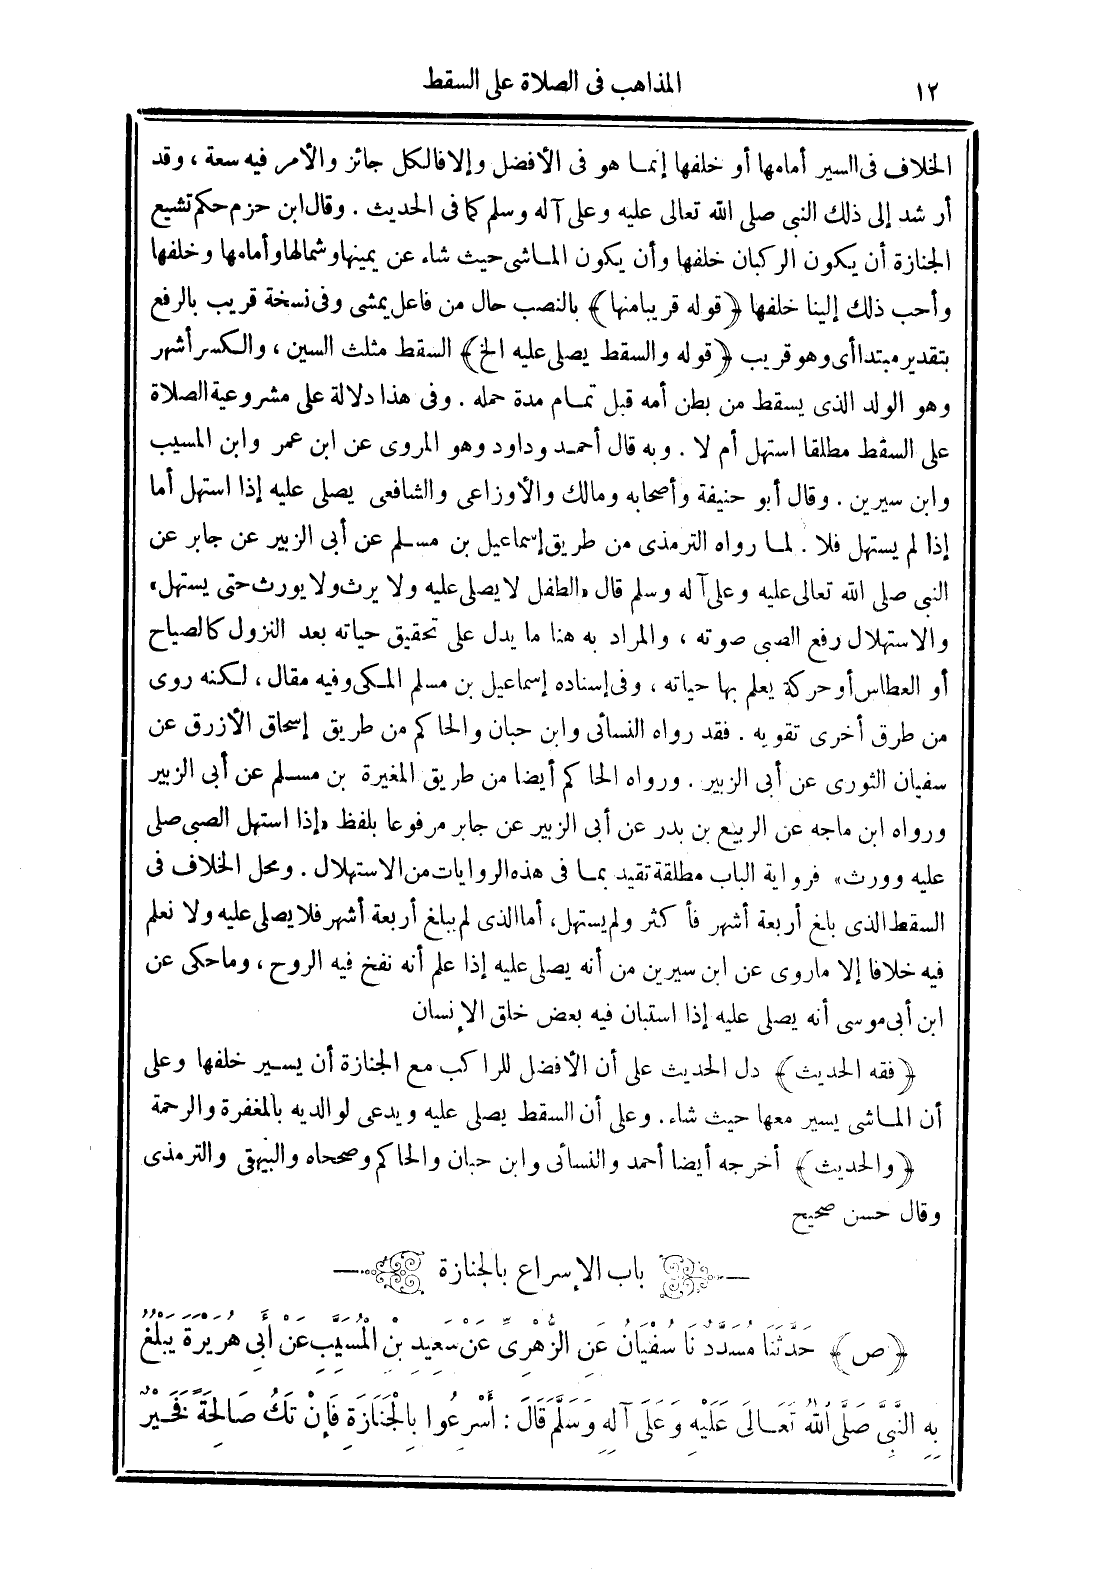 ١٢
المذاهب فى الصلاة على السقط
الخلاف فى السير أمامها أو خلفها إنما هو فى الأفضل وإلا فالكل جائز والأمر فيه سعة ، وقد
أرشد إلى ذلك النبى صلى الله تعالى عليه وعلى آله وسلم كما فى الحديث . وقال ابن حزم حكم تشيع
الجنازة أن يكون الركبان خلفها وأن يكون الماشى حيث شاء عن يمينها وشمالها وأمامها وخلفها
وأحب ذلك إلينا خلفها ﴿قوله قريبا منها﴾ بالنصب حال من فاعل يمشى وفى نسخة قريب بالرفع
بتقدير مبتدا أى وهو قريب ﴿قوله والسقط يصلى عليه الخ﴾ السقط مثلث السين ، والكسر أشهر
وهو الولد الذى يسقط من بطن أمه قبل تمام مدة حمله . وفى هذا دلالة على مشروعية الصلاة
على السقط مطلقا استهل أم لا . وبه قال أحمد وداود وهو المروى عن ابن عمر وابن المسيب
وابن سيرين . وقال أبو حنيفة وأصحابه ومالك والأوزاعى والشافعى يصلى عليه إذا استهل أما
إذا لم يستهل فلا . لما رواه الترمذى من طريق إسماعيل بن مسلم عن أبى الزبير عن جابر عن
النبى صلى الله تعالى عليه وعلى آله وسلم قال «الطفل لا يصلى عليه ولا يرث ولا يورث حتى يستهل»
والاستهلال رفع الصبى صوته ، والمراد به هنا ما يدل على تحقيق حياته بعد النزول كالصياح
أو العطاس أو حركة يعلم بها حياته ، وفى إسناده إسماعيل بن مسلم المكى وفيه مقال ، لكنه روى
من طرق أخرى تقويه . فقد رواه النسائى وابن حبان والحاكم من طريق إسحاق الأزرق عن
سفيان الثورى عن أبى الزبير . ورواه الحاكم أيضا من طريق المغيرة بن مسلم عن أبى الزبير
ورواه ابن ماجه عن الربيع بن بدر عن أبى الزبير عن جابر مرفوعا بلفظ «إذا استهل الصبى صلى
عليه وورث» فرواية الباب مطلقة تقيد بما فى هذه الروايات من الاستهلال . ومحل الخلاف فى
السقط الذى بلغ أربعة أشهر فأكثر ولم يستهل، أما الذى لم يبلغ أربعة أشهر فلا يصلى عليه ولا نعلم
فيه خلافا إلا ماروى عن ابن سيرين من أنه يصلى عليه إذا علم أنه نفخ فيه الروح ، وماحكى عن
ابن أبى موسى أنه يصلى عليه إذا استبان فيه بعض خلق الإنسان
﴿فقه الحديث﴾ دل الحديث على أن الأفضل للراكب مع الجنازة أن يسير خلفها وعلى
أن الماشى يسير معها حيث شاء. وعلى أن السقط يصلى عليه ويدعى لوالديه بالمغفرة والرحمة
﴿والحديث﴾ أخرجه أيضا أحمد والنسائى وابن حبان والحاكم وصححاه والبيهقى والترمذى
وقال حسن صحيح
باب الإسراع بالجنازة
﴿ص﴾ حَدَّثَنَا مُسَدَّدٌ نَا سُفْيَانُ عَنِ الزُّهْرِىِّ عَنْ سَعِيدِ بْنِ الْمُسَيَّبِ عَنْ أَبِى هُرَيْرَةَ يَبْلُغُ
بِهِ النَّبِىَّ صَلَّى اللهُ تَعَالَى عَلَيْهِ وَعَلَى آلِهِ وَسَلَّمَ قَالَ : أَسْرِعُوا بِالْجَنَازَةِ فَإِنْ تَكُ صَالِحَةً فَخَيْرٌ